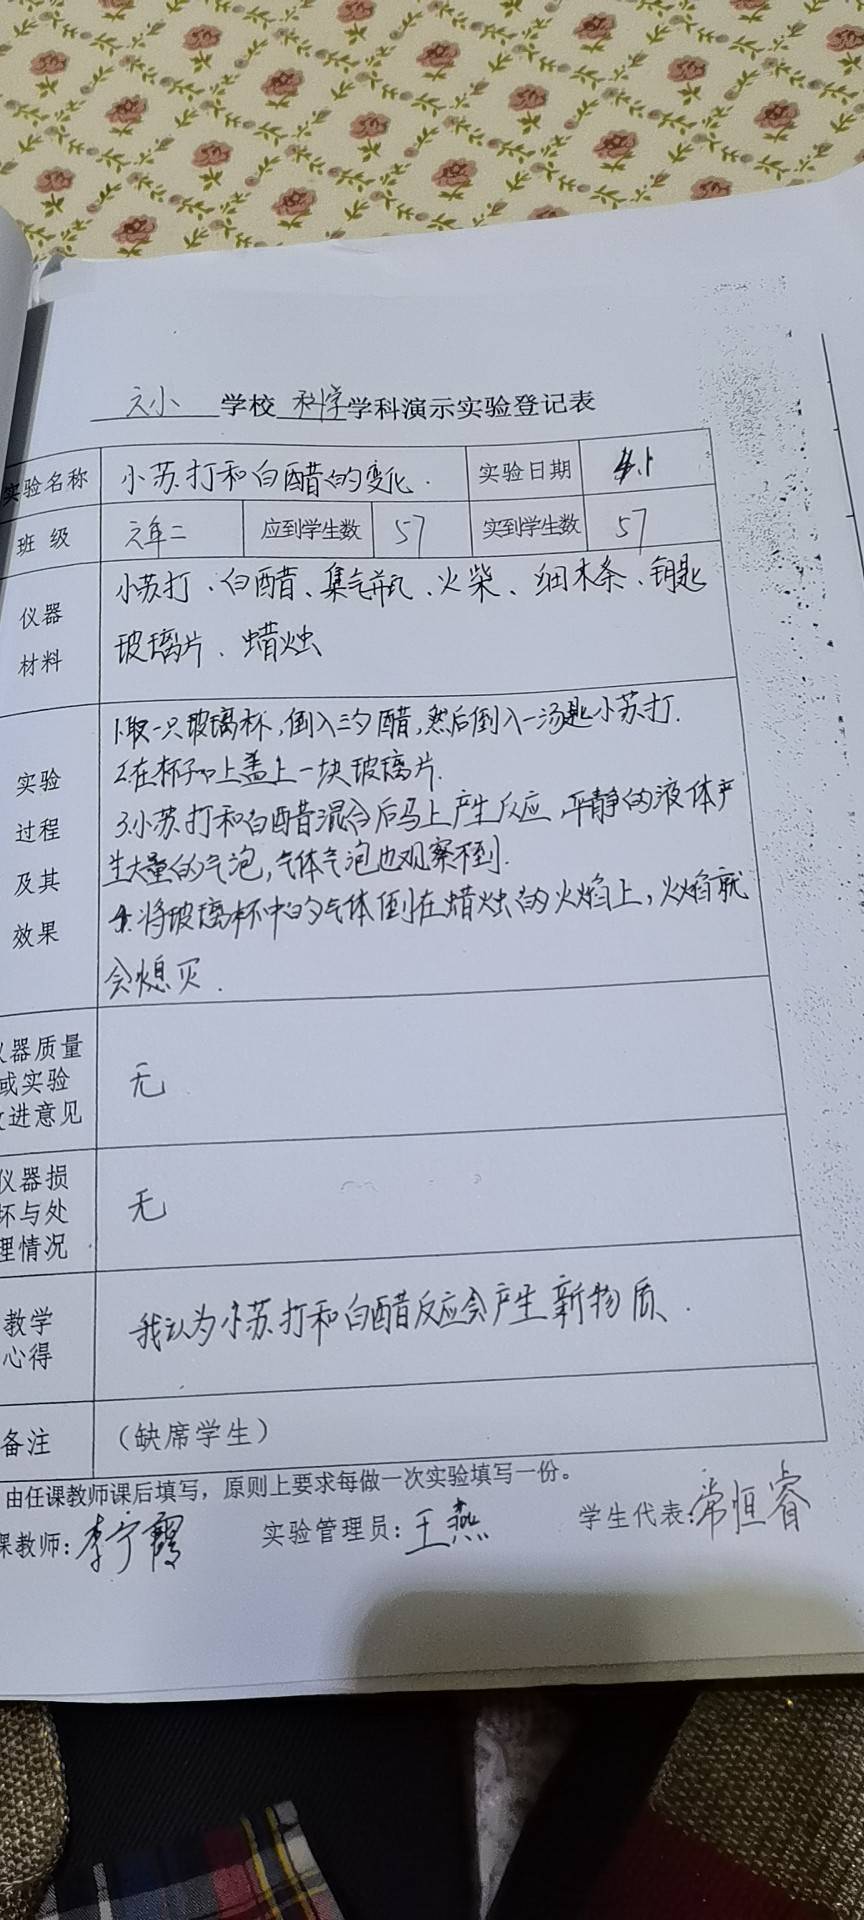 学校 科学 学科演示实验登记表
实验名称 小苏打和白醋的变化. 实验日期
班 级 应到学生数 57 实到学生数 57
仪器
材料
小苏打、白醋、集气瓶、火柴、细木条、钥匙
玻璃片、蜡烛
实验
过程
及其
效果
1.取一只玻璃杯,倒入三勺醋,然后倒入一汤匙小苏打.
2.在杯子口上盖上一块玻璃片.
3.小苏打和白醋混合后马上产生反应,平静的液体产
生大量的气泡,气体气泡也观察不到.
4.将玻璃杯中的气体倒在蜡烛的火焰上,火焰就
会熄灭.
器质量
或实验
进意见
无
仪器损
坏与处
理情况
无
教学
心得
我认为小苏打和白醋反应会产生新物质.
备注 (缺席学生)
由任课教师课后填写，原则上要求每做一次实验填写一份。
课教师: 李宁霞 实验管理员: 王燕 学生代表: 常恒睿